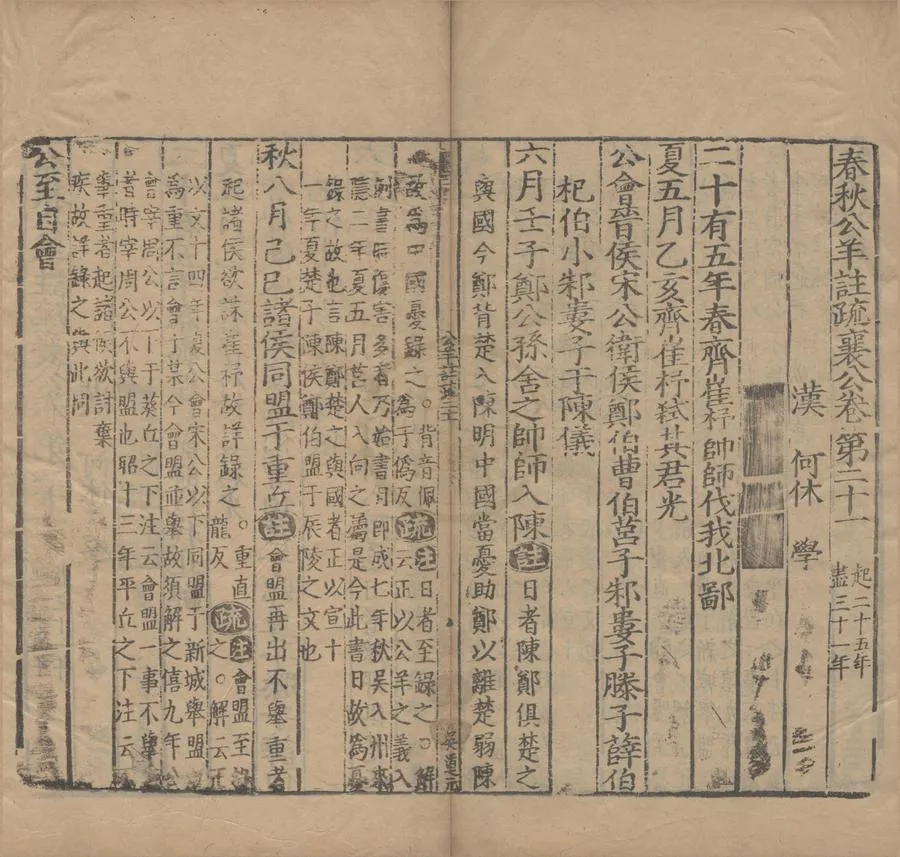 春秋公羊註疏襄公卷第二十一 起二十五年盡三十一年
漢 何休 學
二十有五年春齊崔杼帥師伐我北鄙
夏五月乙亥齊崔杼弑其君光
公會晉侯宋公衛侯鄭伯曹伯莒子邾婁子滕子薛伯
杞伯小邾婁子于陳儀
六月壬子鄭公孫舍之帥師入陳註日者陳鄭俱楚之
與國今鄭背楚入陳明中國當憂助鄭以離楚弱陳
故爲中國憂錄之。背音佩疏注日者至錄之。解
爲于僞反云正以公羊之義入
例書時傷害多者乃始書月即成七年秋吳入州來
隱二年夏五月莒人入向之屬是今此書日故爲憂
錄之故也言陳鄭楚之與國者正以宣十
一年夏楚子陳侯鄭伯盟于辰陵之文也
秋八月己巳諸侯同盟于重丘註會盟再出不舉重者
起諸侯欲誅崔杼故詳錄之。重直疏注會盟至
龍反之。解云
以文十四年夏公會宋公以下同盟于新城舉盟
爲重不言會于某今會盟並舉故須解之僖九年
會宰周公以下于葵丘之下注云會盟一事不舉
者時宰周公不與盟也昭十三年平丘之下注云
舉重者起諸侯欲討棄
疾故詳錄之與此同
公至自會
公羊註疏二十
吳道元